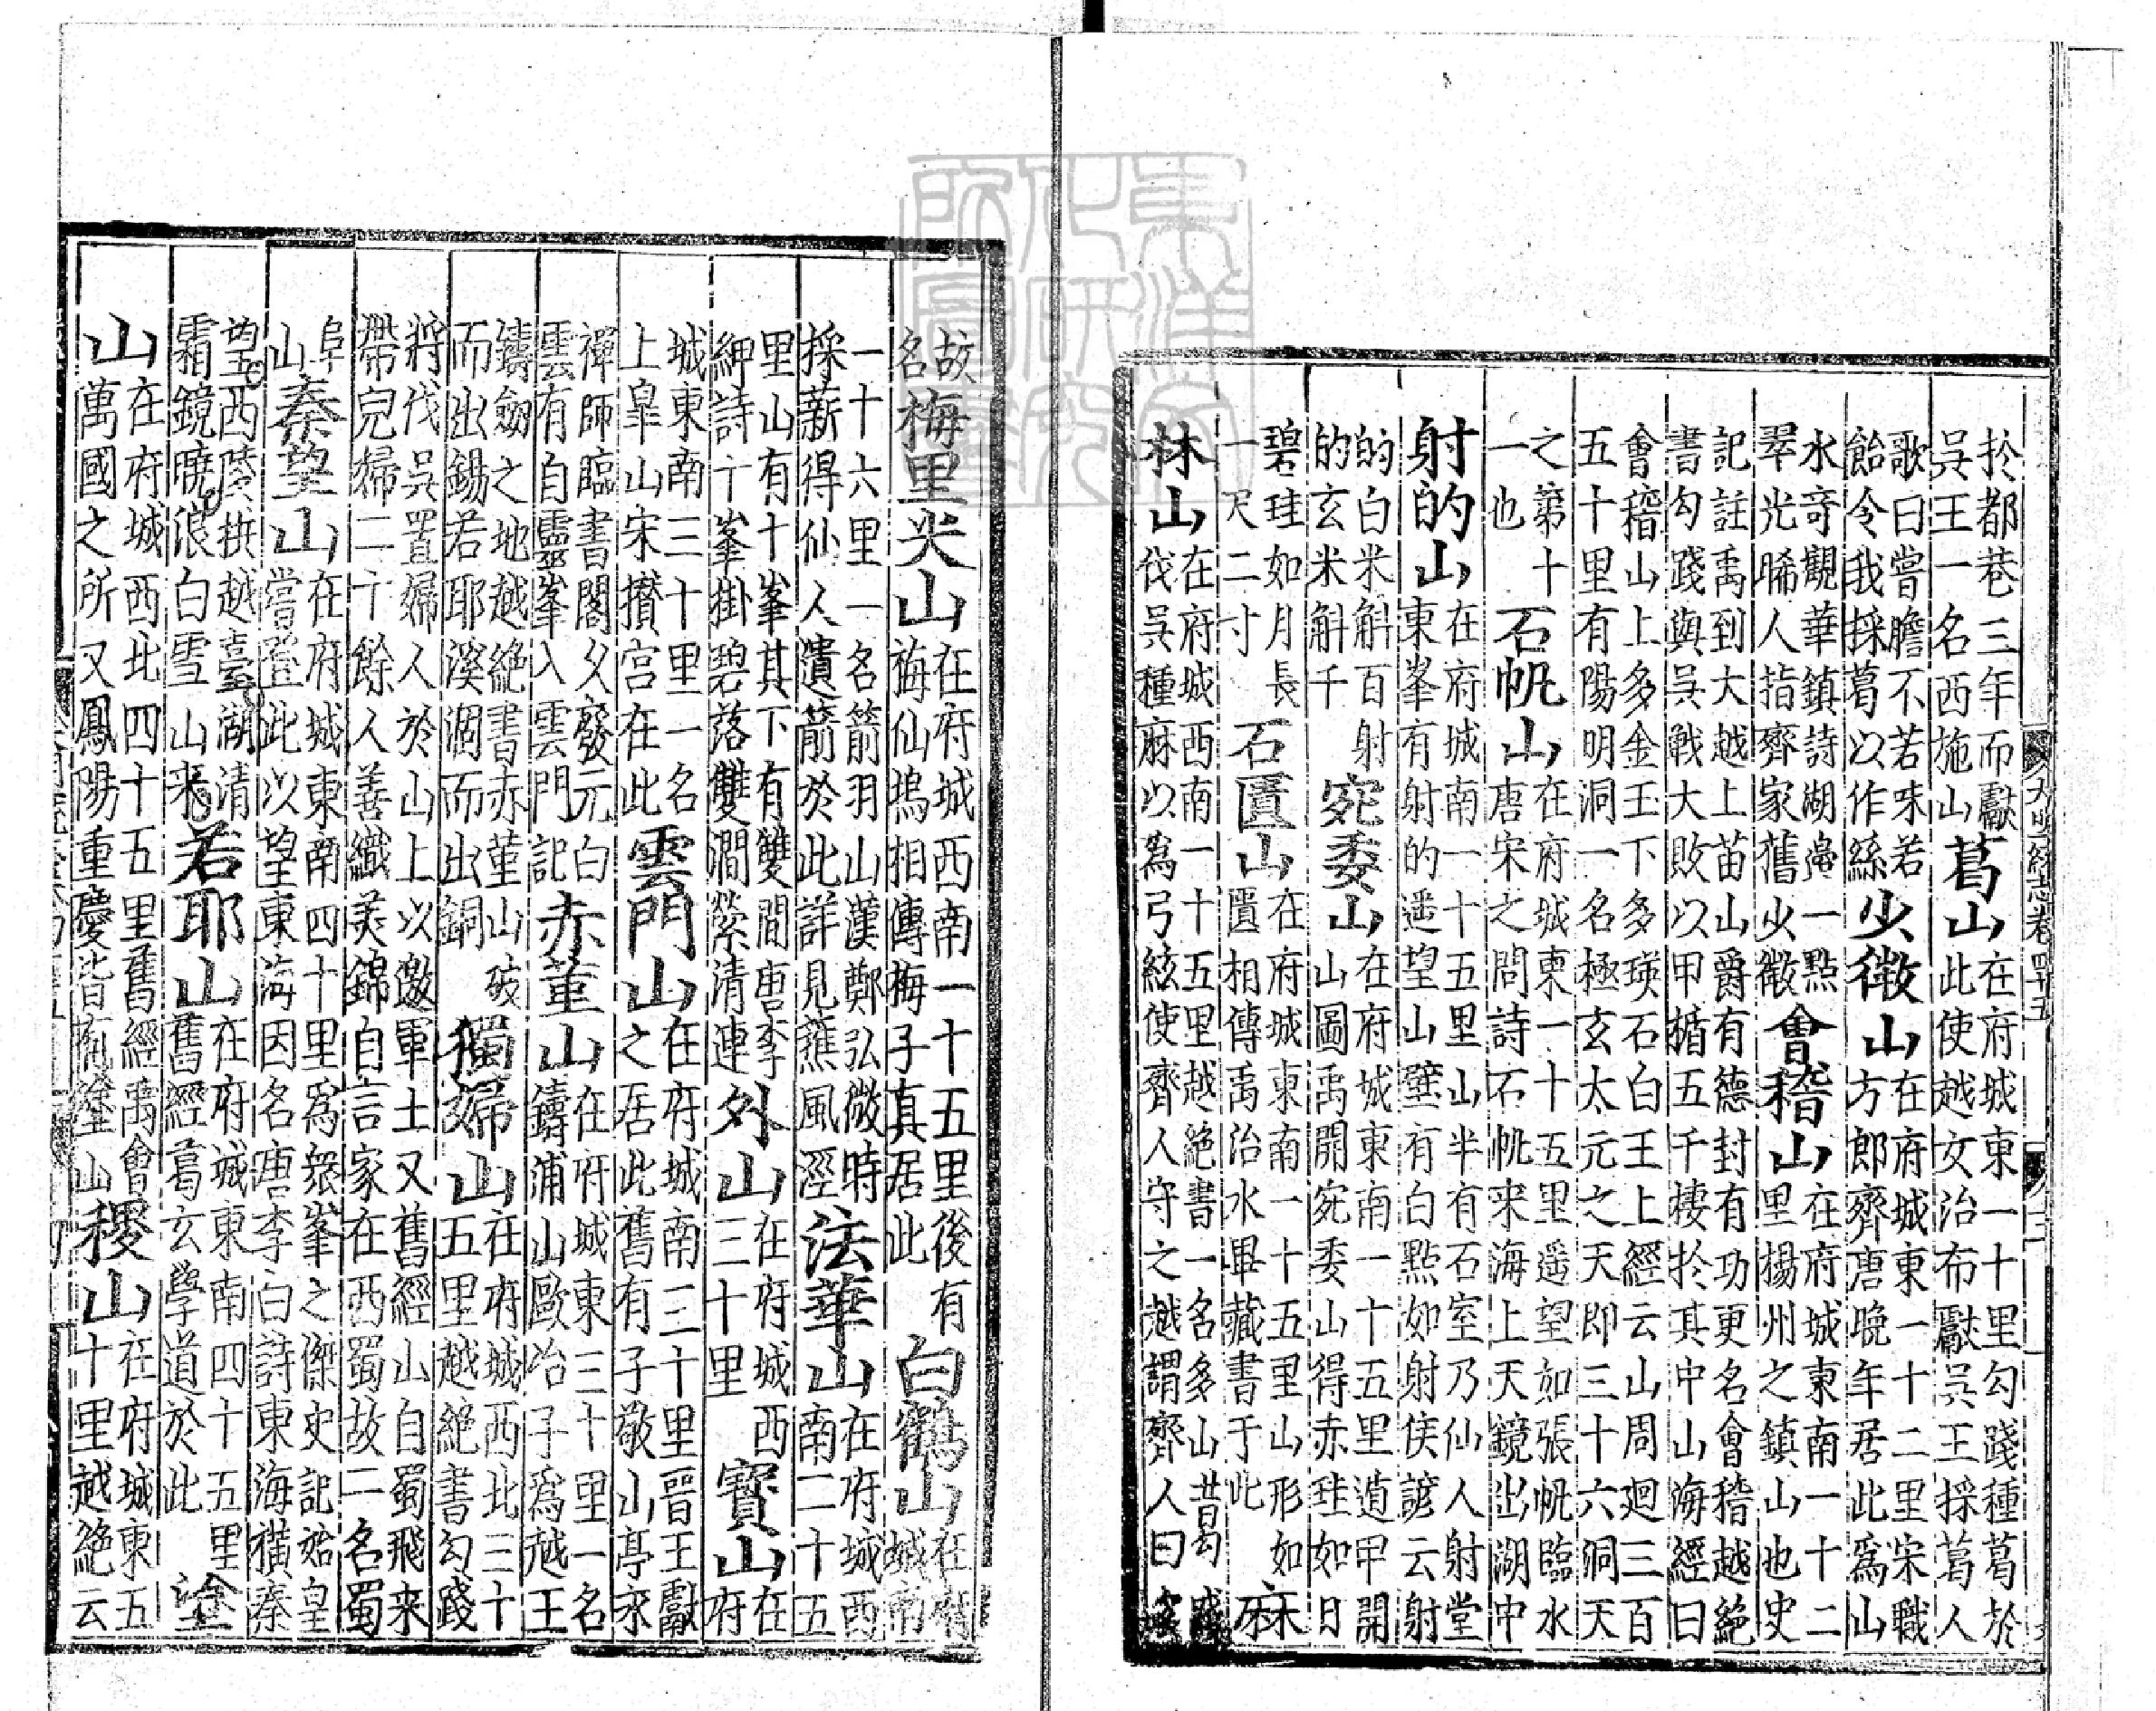 於都巷三年而獻吳王一名西施山葛山在府城東一十里勾踐種葛於此使越女治布獻吳王採葛人
歌曰嘗膽不若味若飴令我採葛以作絲少微山在府城東一十二里宋職方郎齊唐晚年居此爲山
水竒觀華鎮詩湖邊一點翠光晞人指齊家舊少微會稽山在府城東南一十二里揚州之鎮山也史
記註禹到大越上苗山爵有德封有功更名會稽越絕書勾踐與吳戰大敗以甲楯五千棲於其中山海經曰
會稽山上多金玉下多瑛石白王上經云山周廻三百五十里有陽明洞一名極玄太元之天即三十六洞天
之第十一也石帆山在府城東一十五里遥望如張帆臨水唐宋之問詩石帆来海上天鏡出湖中
射的山在府城南一十五里山半有石室乃仙人射堂東峯有射的遥望山壁有白點如射侯諺云射
的白米斛百射的玄米斛千宛委山在府城東南一十五里遁甲開山圖禹開宛委山得赤珪如日
碧珪如月長一尺二寸石匱山在府城東南一十五里山形如匱相傳禹治水畢藏書于此麻
林山在府城西南一十五里越絕書一名多山昔勾踐伐吳種麻以為弓絃使齊人守之越謂齊人曰多
故名梅里尖山在府城西南一十五里後有梅仙塢相傳梅子真居此白鶴山在府城南
一十六里一名箭羽山漢鄭弘微時採薪得仙人遺箭於此詳見樵風涇法華山在府城西南二十五
里山有十峯其下有雙間唐李紳詩十峯掛碧落雙澗縈清連外山在府城西三十里寶山在府
城東南三十里一名上皐山宋攢宮在此雲門山在府城南三十里晉王獻之居此舊有子敬山亭永
禪師臨書閣久廢元白雲有自靈峯入雲門記赤堇山在府城東三十里一名鑄浦山歐冶子爲越王
鑄劒之地越絕書赤堇山破而出錫若耶溪涸而出銅獨婦山在府城西北三十五里越絕書勾踐
將伐吳置婦人於山上以邀軍士又舊經山自蜀飛来帶兒婦二十餘人善織美錦自言家在西蜀故二名蜀
阜山秦望山在府城東南四十里爲衆峯之傑史記始皇嘗登此以望東海因名唐李白詩東海横秦
望西陵拱越臺湖清霜鏡曉浪白雪山来若耶山在府城東南四十五里舊經葛玄學道於此塗
山在府城西北四十五里舊經禹會萬國之所又鳳陽重慶皆有塗山稷山在府城東五十里越絕云